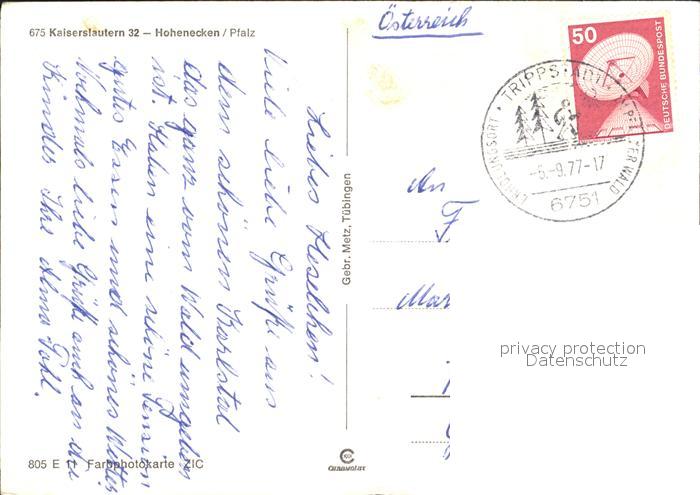 675 Kaiserslautern 32 — Hohenecken / Pfalz
Liebes Roselchen!
Viele liebe Grüße aus
dem schönen Karlstal
das ganz vom Wald umgeben
ist. Haben eine schöne Pension
gutes Essen und schönes Wetter.
Nochmals liebe Grüße auch an die
Kinder Ihre Alma
805 E 11 Farbphotokarte ZIC
Gebr. Metz, Tübingen
CHROMOLUX
Österreich
50
DEUTSCHE BUNDESPOST
TRIPPSTADT
ERHOLUNGSORT
PFÄLZER WALD
-6.-9.77-17
6751
An
F
Mar
privacy protection
Datenschutz